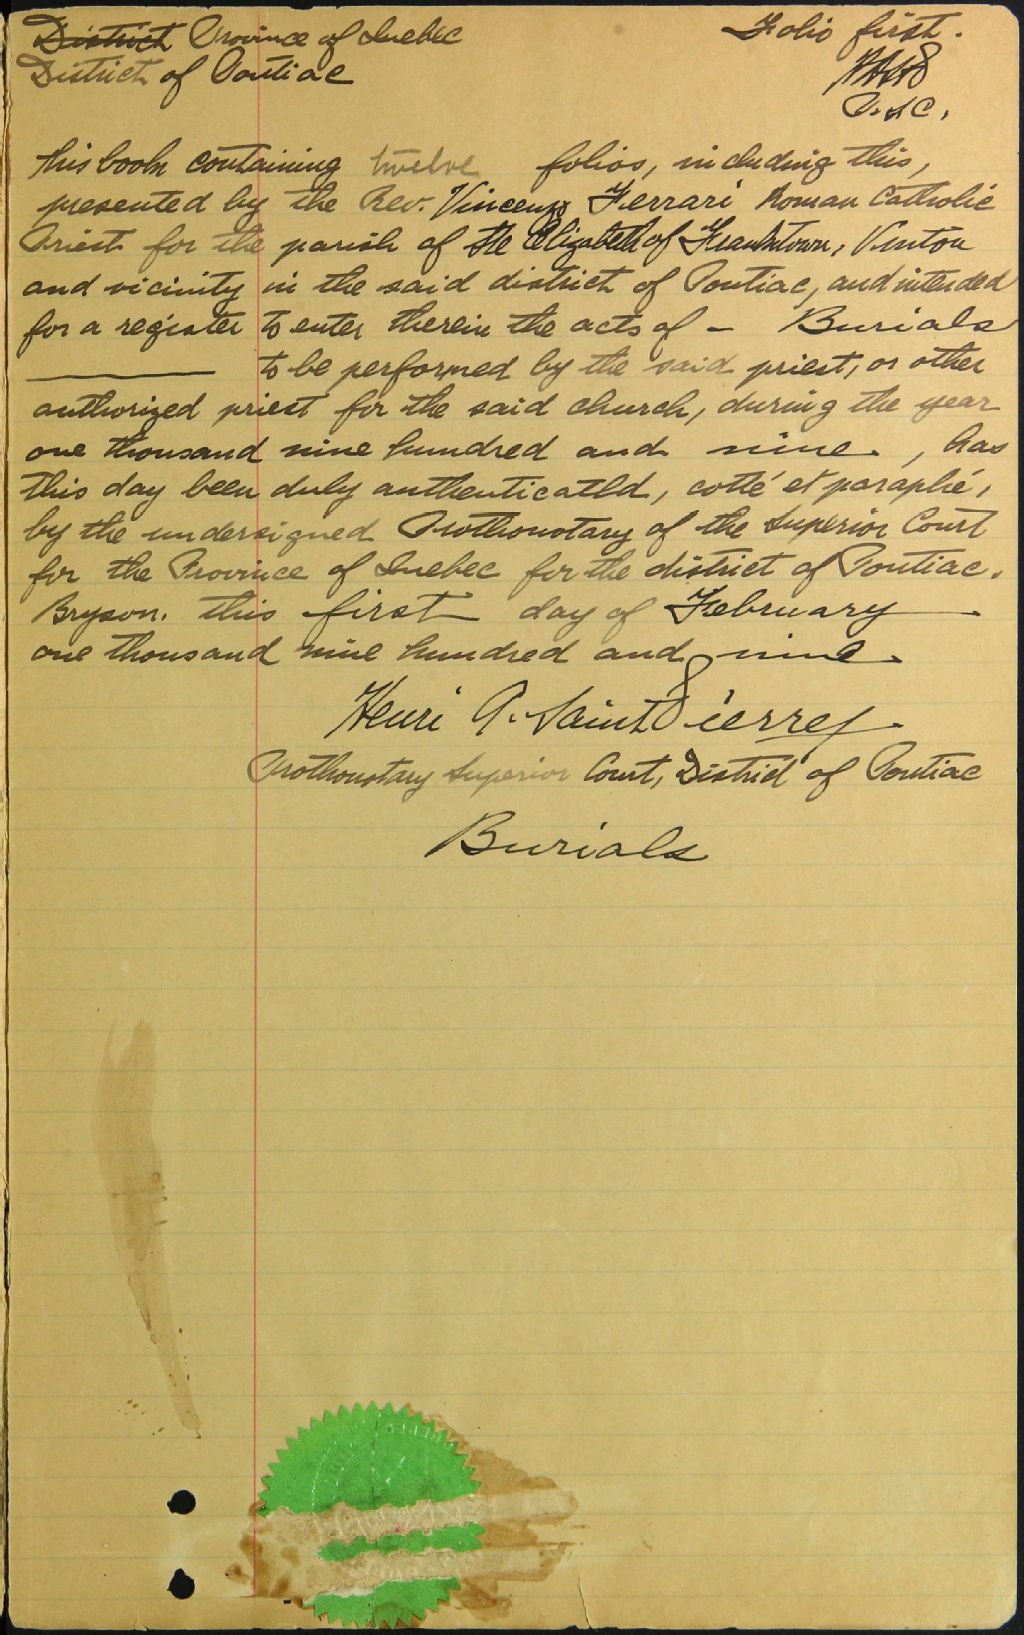 District Province of Quebec
Folio first.
District of Pontiac
P.S.C.
This book containing twelve folios, including this,
presented by the Rev. Vincenzo Ferrari Roman Catholic
Priest for the parish of Ste Elizabeth of Franktown, Vinton
and vicinity in the said district of Pontiac, and intended
for a register to enter therein the acts of – Burials
to be performed by the said priest, or other
authorized priest for the said church, during the year
one thousand nine hundred and nine, has
this day been duly authenticated, cotté et paraphé,
by the undersigned Prothonotary of the Superior Court
for the Province of Quebec for the district of Pontiac.
Bryson. this first day of February
one thousand nine hundred and nine.
Henri P. Saint Pierre
Prothonotary Superior Court, District of Pontiac
Burials